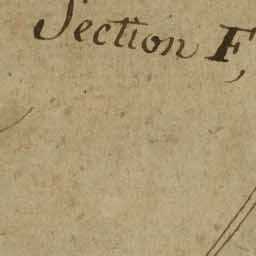 Section F,